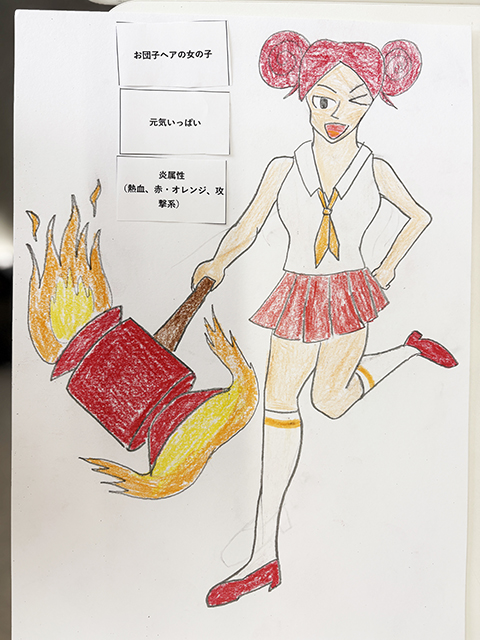 お団子ヘアの女の子
元気いっぱい
炎属性
（熱血、赤・オレンジ、攻
撃系）